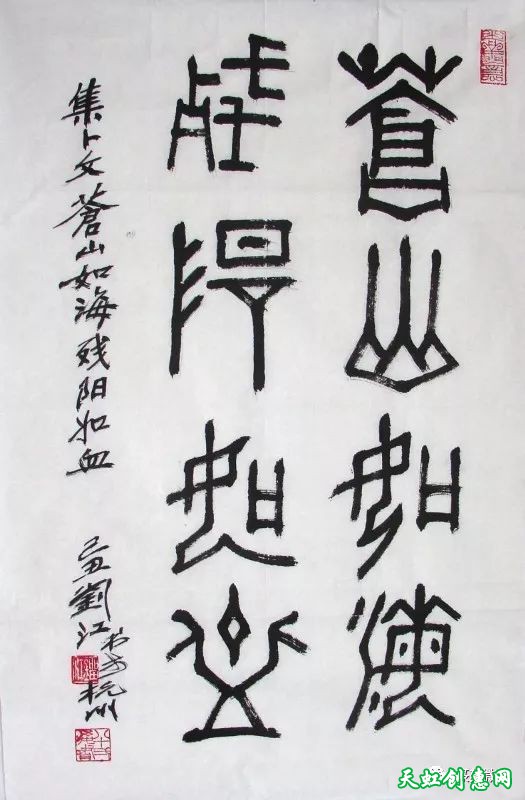 蒼山如海
残陽如血
集卜文蒼山如海残阳如血
己丑劉江书於杭州
天虹创意网